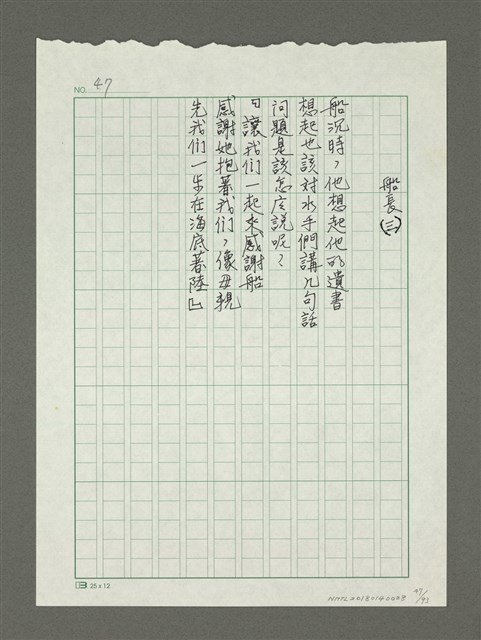 NO. 47
船長(三)
船沉時，他想起他的遺書
想起也該对水手們講几句話
问題是該怎么說呢？
「讓我们一起來感謝船
感謝她抱著我们，像母親
先我们一步在海底著陸」
25 x 12
NMTL20180140008
47/93